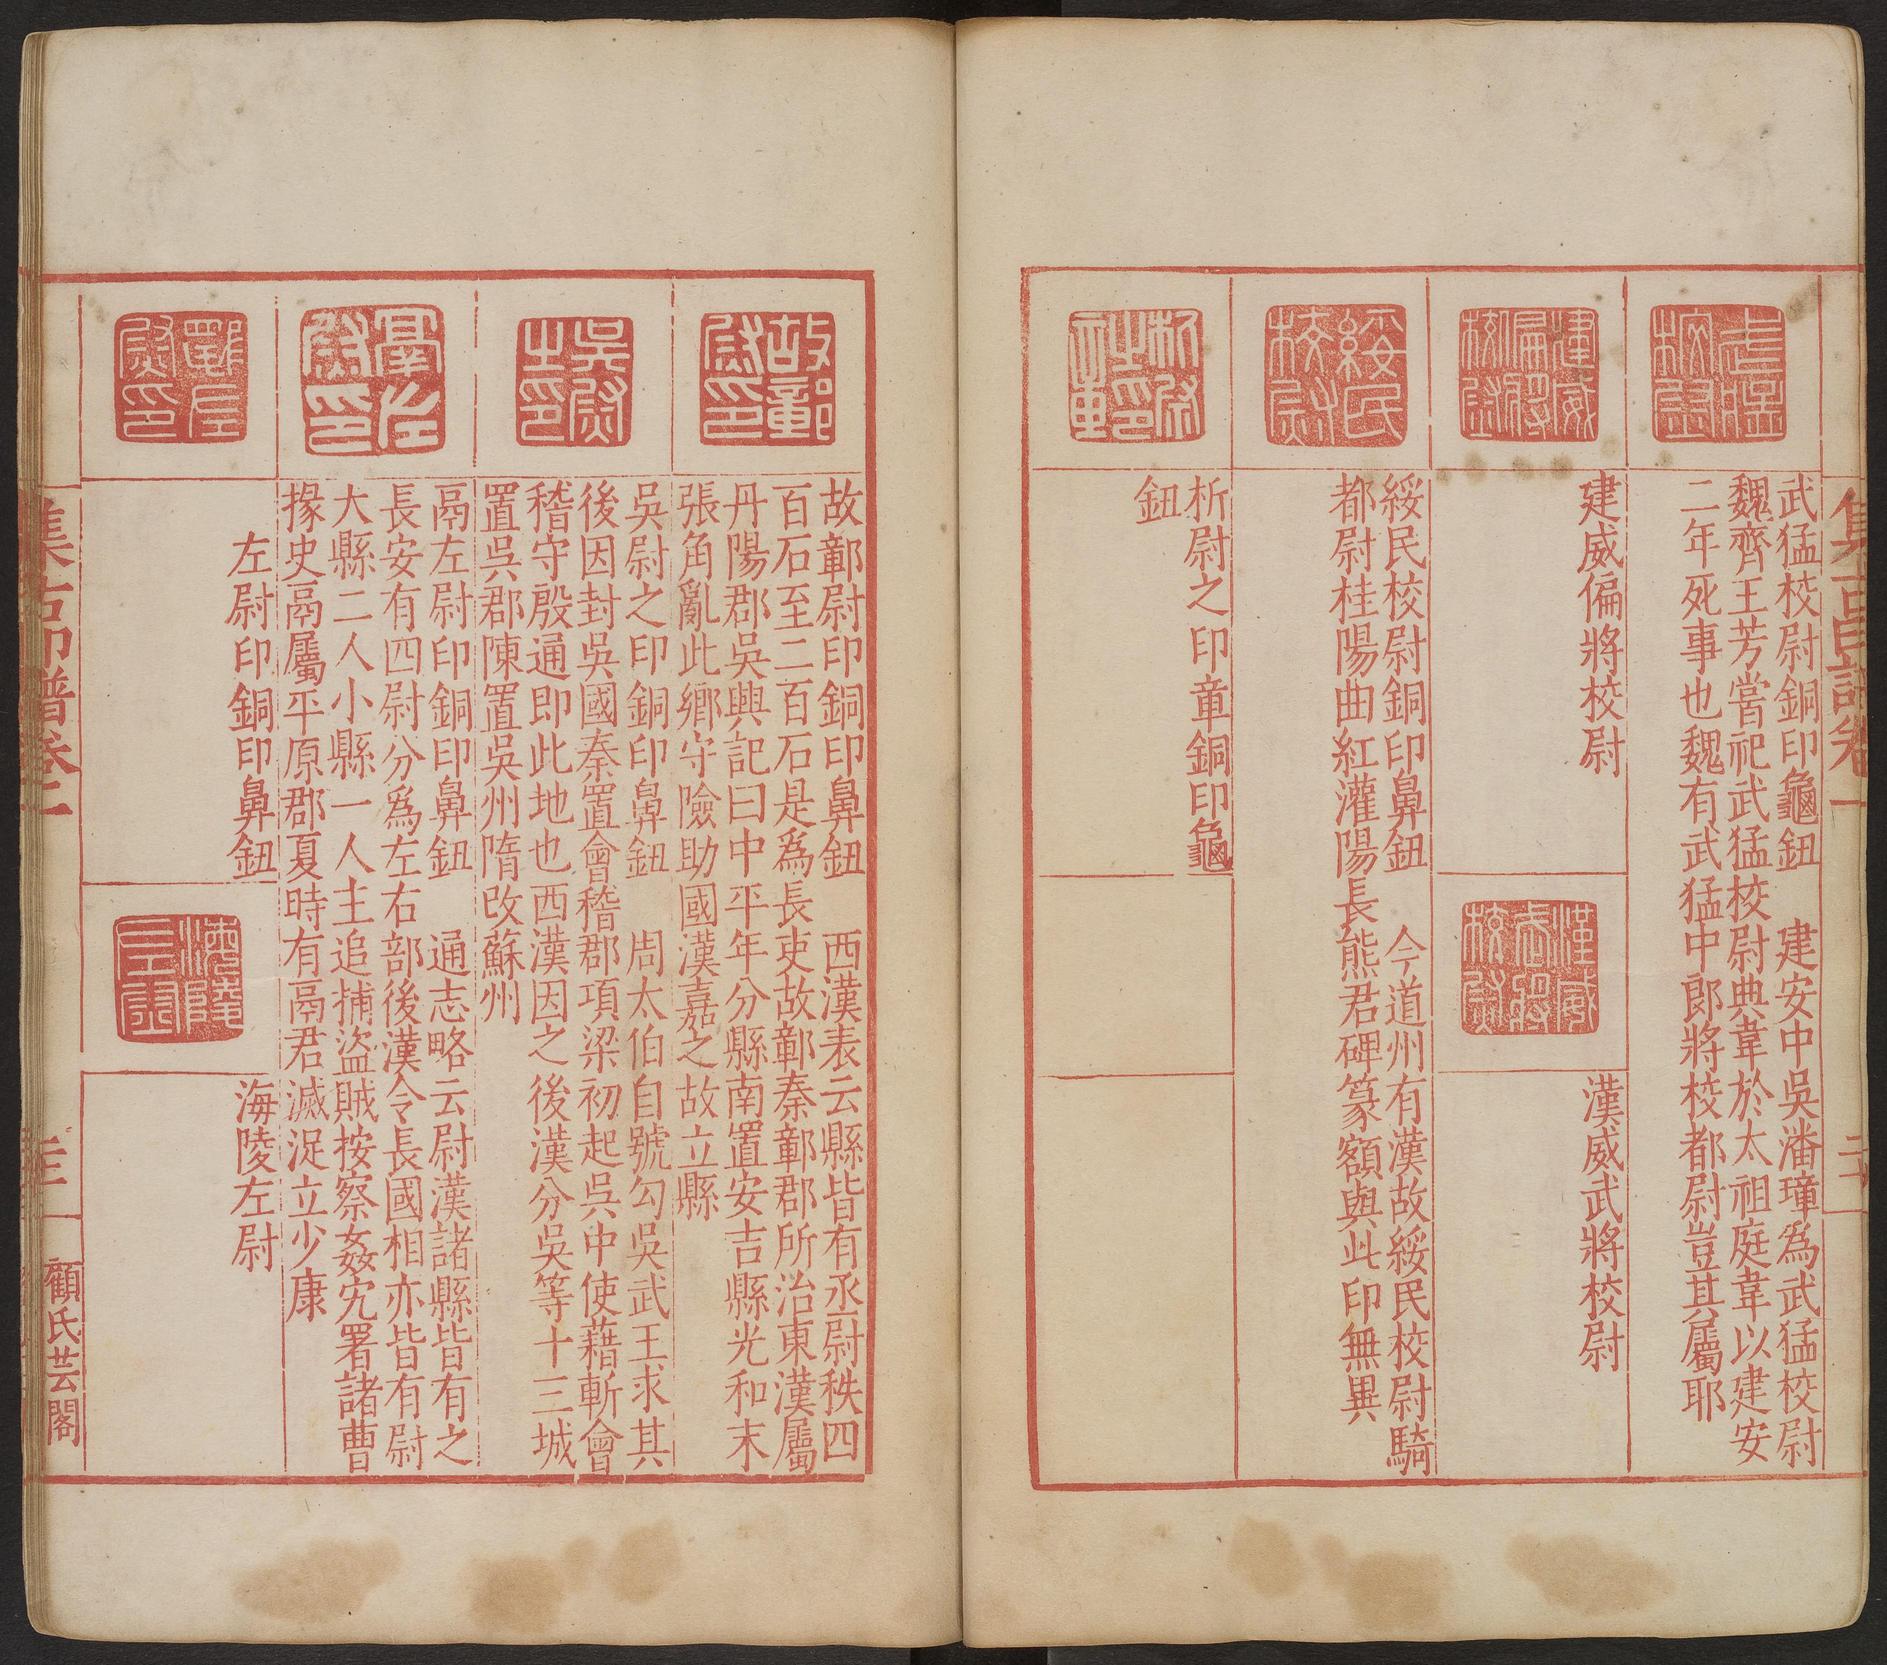 武猛校尉銅印龜鈕　建安中吳潘璋為武猛校尉
魏齊王芳嘗祀武猛校尉典韋於太祖庭韋以建安
二年死事也魏有武猛中郎將校都尉豈其屬耶
建威偏將校尉
漢威武將校尉
綏民校尉銅印鼻鈕　今道州有漢故綏民校尉騎
都尉桂陽曲紅灌陽長熊君碑篆額與此印無異
析尉之印章銅印龜
鈕
故鄣尉印銅印鼻鈕　西漢表云縣皆有丞尉秩四
百石至二百石是為長吏故鄣秦鄣郡所治東漢屬
丹陽郡吳興記曰中平年分縣南置安吉縣光和末
張角亂此鄉守險助國漢嘉之故立縣
吳尉之印銅印鼻鈕　周太伯自號勾吳武王求其
後因封吳國秦置會稽郡項梁初起吳中使藉斬會
稽守殷通即此地也西漢因之後漢分吳等十三城
置吳郡陳置吳州隋改蘇州
鬲左尉印銅印鼻鈕　通志略云尉漢諸縣皆有之
長安有四尉分爲左右部後漢令長國相亦皆有尉
大縣二人小縣一人主追捕盜賊按察姦宄署諸曹
掾史鬲屬平原郡夏時有鬲君滅浞立少康
左尉印銅印鼻鈕
海陵左尉
集古印譜卷二
顧氏芸閣